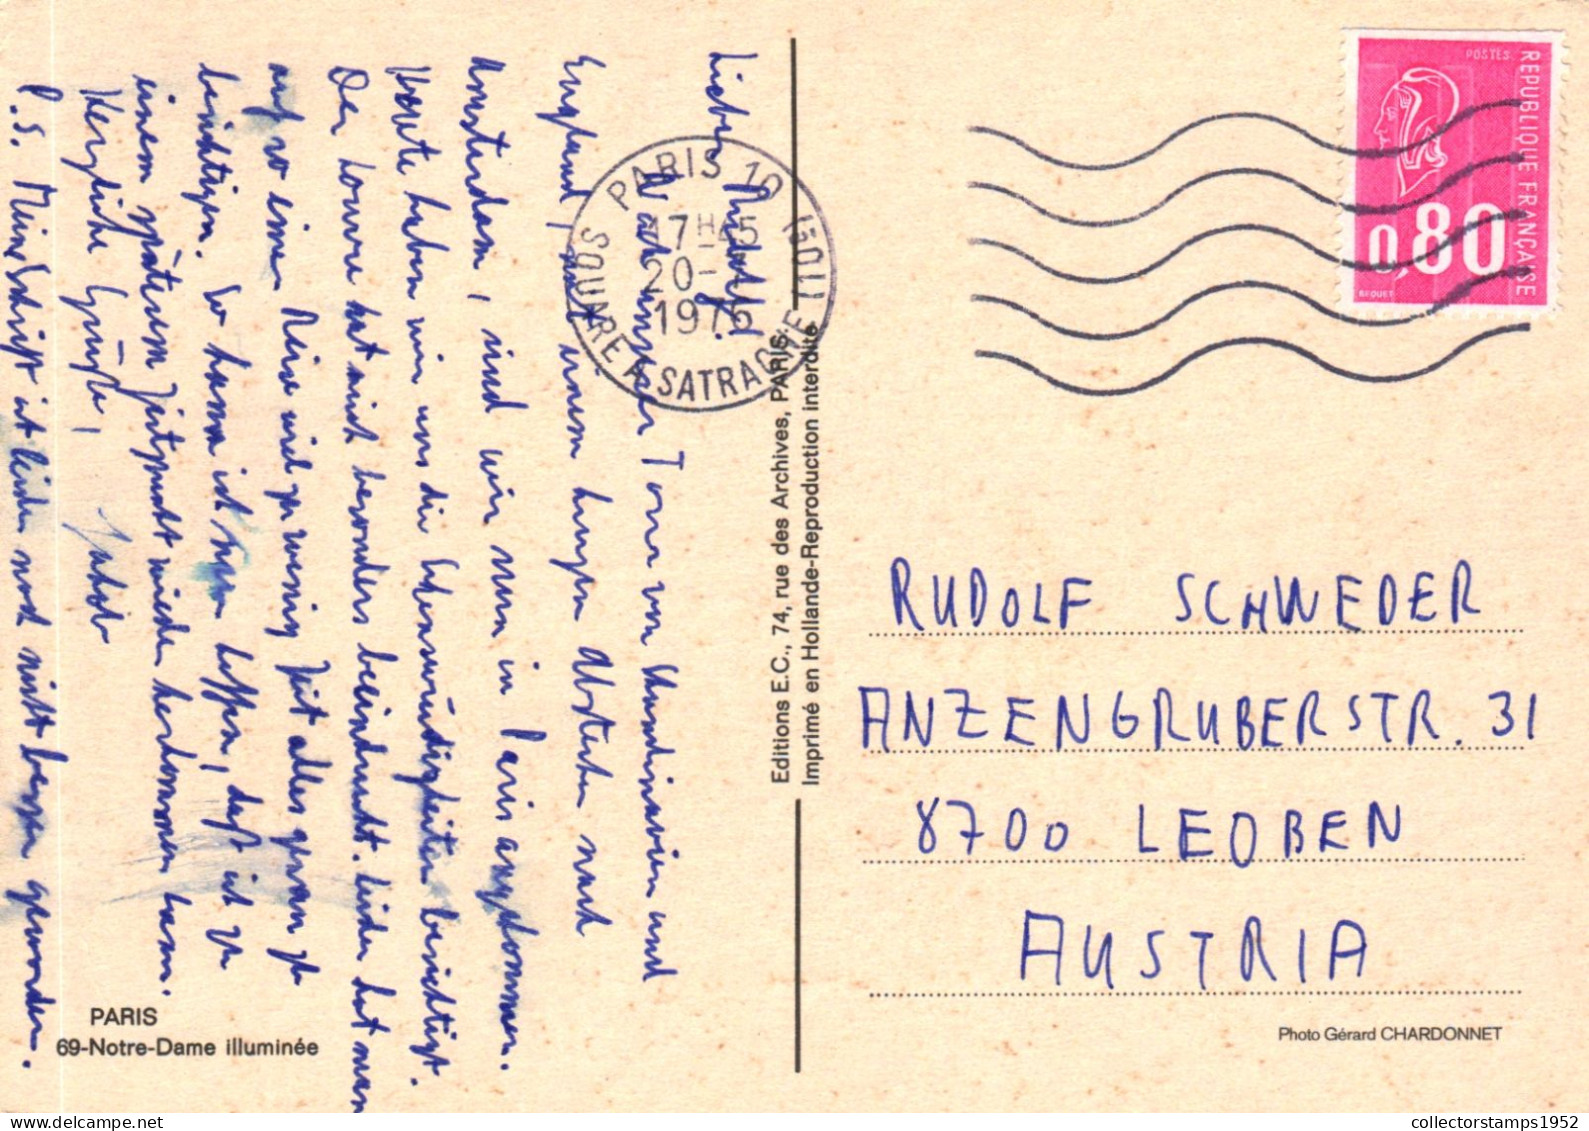 Lieber Rudolf!
Nach unserer Tour von Skandinavien und
England, mit einem kurzen Abstecher nach
Amsterdam, sind wir nun in Paris angekommen.
Heute haben wir uns die Sehenswürdigkeiten besichtigt.
Der Louvre hat mich besonders beeindruckt. Leider hat man
auf so einer Reise viel zu wenig Zeit alles genau zu
besichtigen. So kann ich nur hoffen, daß ich zu
einem späteren Zeitpunkt wieder herkommen kann.
Herzliche Grüße,
P.S. Meine Schrift ist leider noch nicht besser geworden.
PARIS
69-Notre-Dame illuminée
Editions E.C., 74, rue des Archives, PARIS
Imprimé en Hollande-Reproduction interdite
PARIS 10
17H45
20-
1976
SQUARE A. SATRAGNE
POSTES
REPUBLIQUE FRANÇAISE
0,80
BEQUET
RUDOLF SCHWEDER
ANZENGRUBERSTR. 31
8700 LEOBEN
AUSTRIA
Photo Gérard CHARDONNET
collectorstamps1952